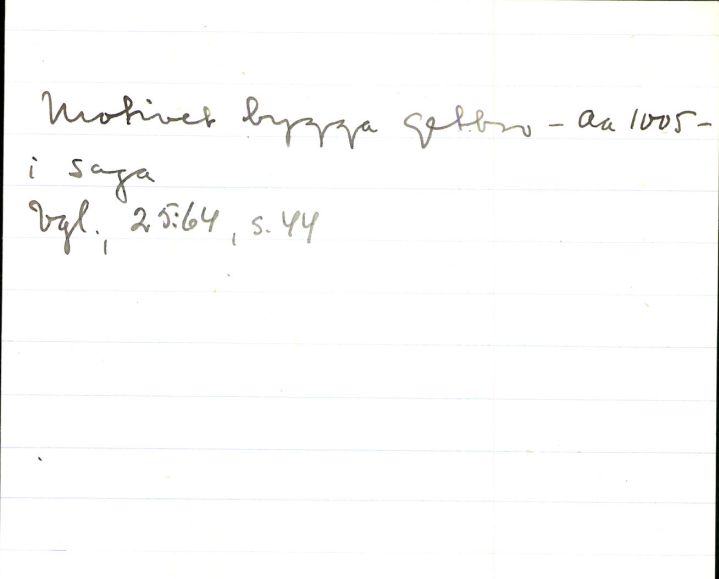 Motivet bygga getbro - Aa 1005 -
i saga
Vgl., 25:64, s. 44